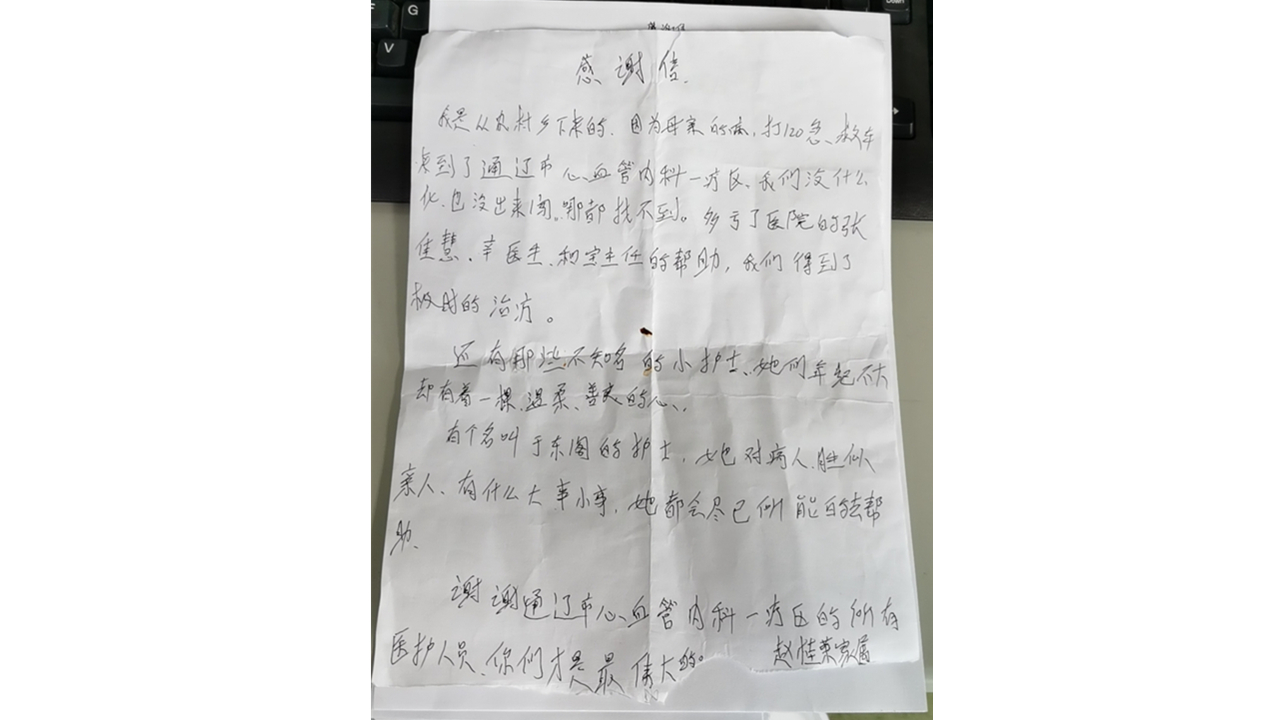 G
F
V
感谢信
我是从农村乡下来的、因为母亲的病，打120急、救车
来到了通辽市心、血管内科一疗区、我们没什么
化、也没出来闯。哪都找不到。多亏了医院的张
佳慧、辛医生、和宝主任的帮助，我们得到了
极时的治疗。
还有那些不知名的小护士、她们年纪不大
却有着一棵、温柔、善良的心、
有个名叫于东阁的护士，她对病人、胜似
亲人、有什么大事小事，她都会尽己所能的去帮
助、
谢谢通辽市心、血管内科一疗区的所有
医护人员、你们才是最伟大的。
赵桂荣家属